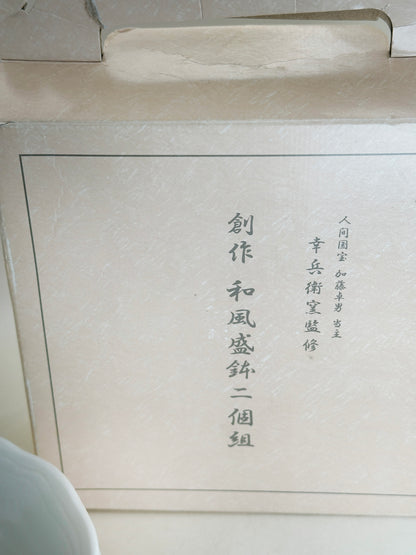 人间国宝 加藤卓男 当主
幸兵衛窯監修
創作 和風盛鉢二個組